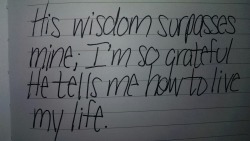 His wisdom surpasses
mine; I'm so grateful
He tells me how to live
my life.